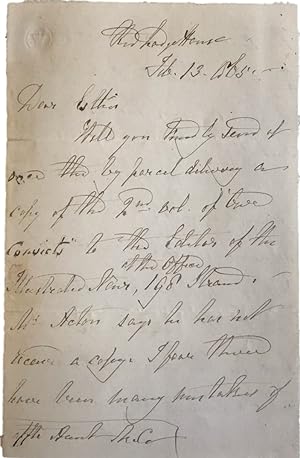 House
Feb. 13. 1865.
Dear Ellis
Will you kindly send
over the by parcel delivery a
copy of the 2nd Vol. of "Our
Convicts" to the Editor of the
at the Office
Illustrated News, 198 Strand.
Mr Acton says he has not
receive a copy. I fear there
have been many mistakes of